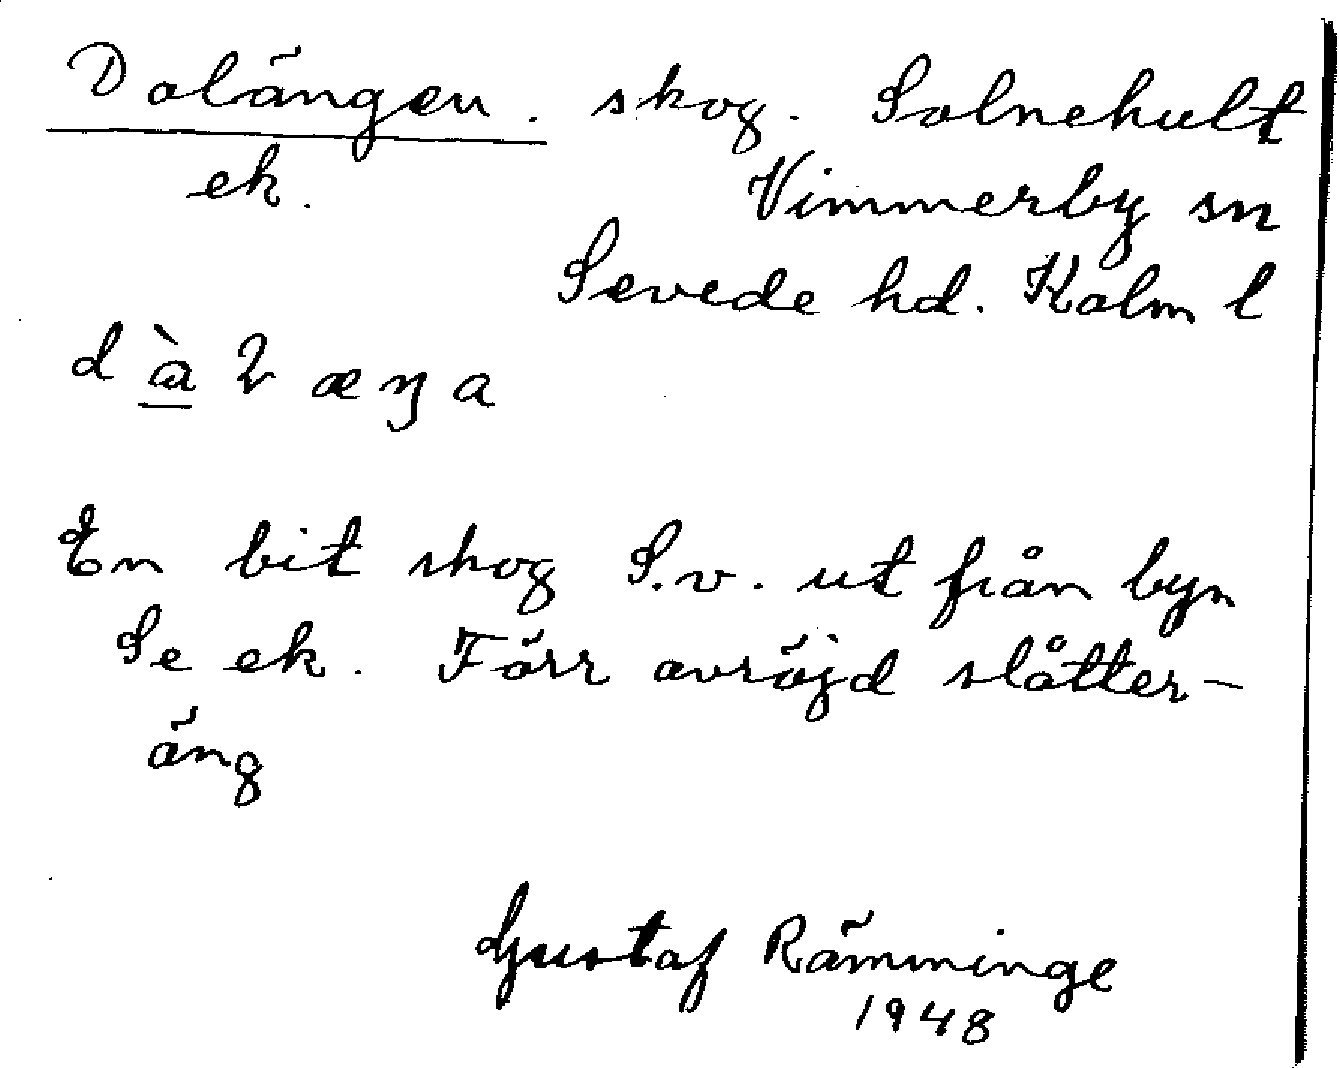 Dalängen. skog. Solnehult
ek. Vimmerby sn
Sevede hd. Kalm l
En bit skog S.v. ut från byn
Se ek. Förr avröjd slåtter-
äng
Gustaf Rämminge
1948